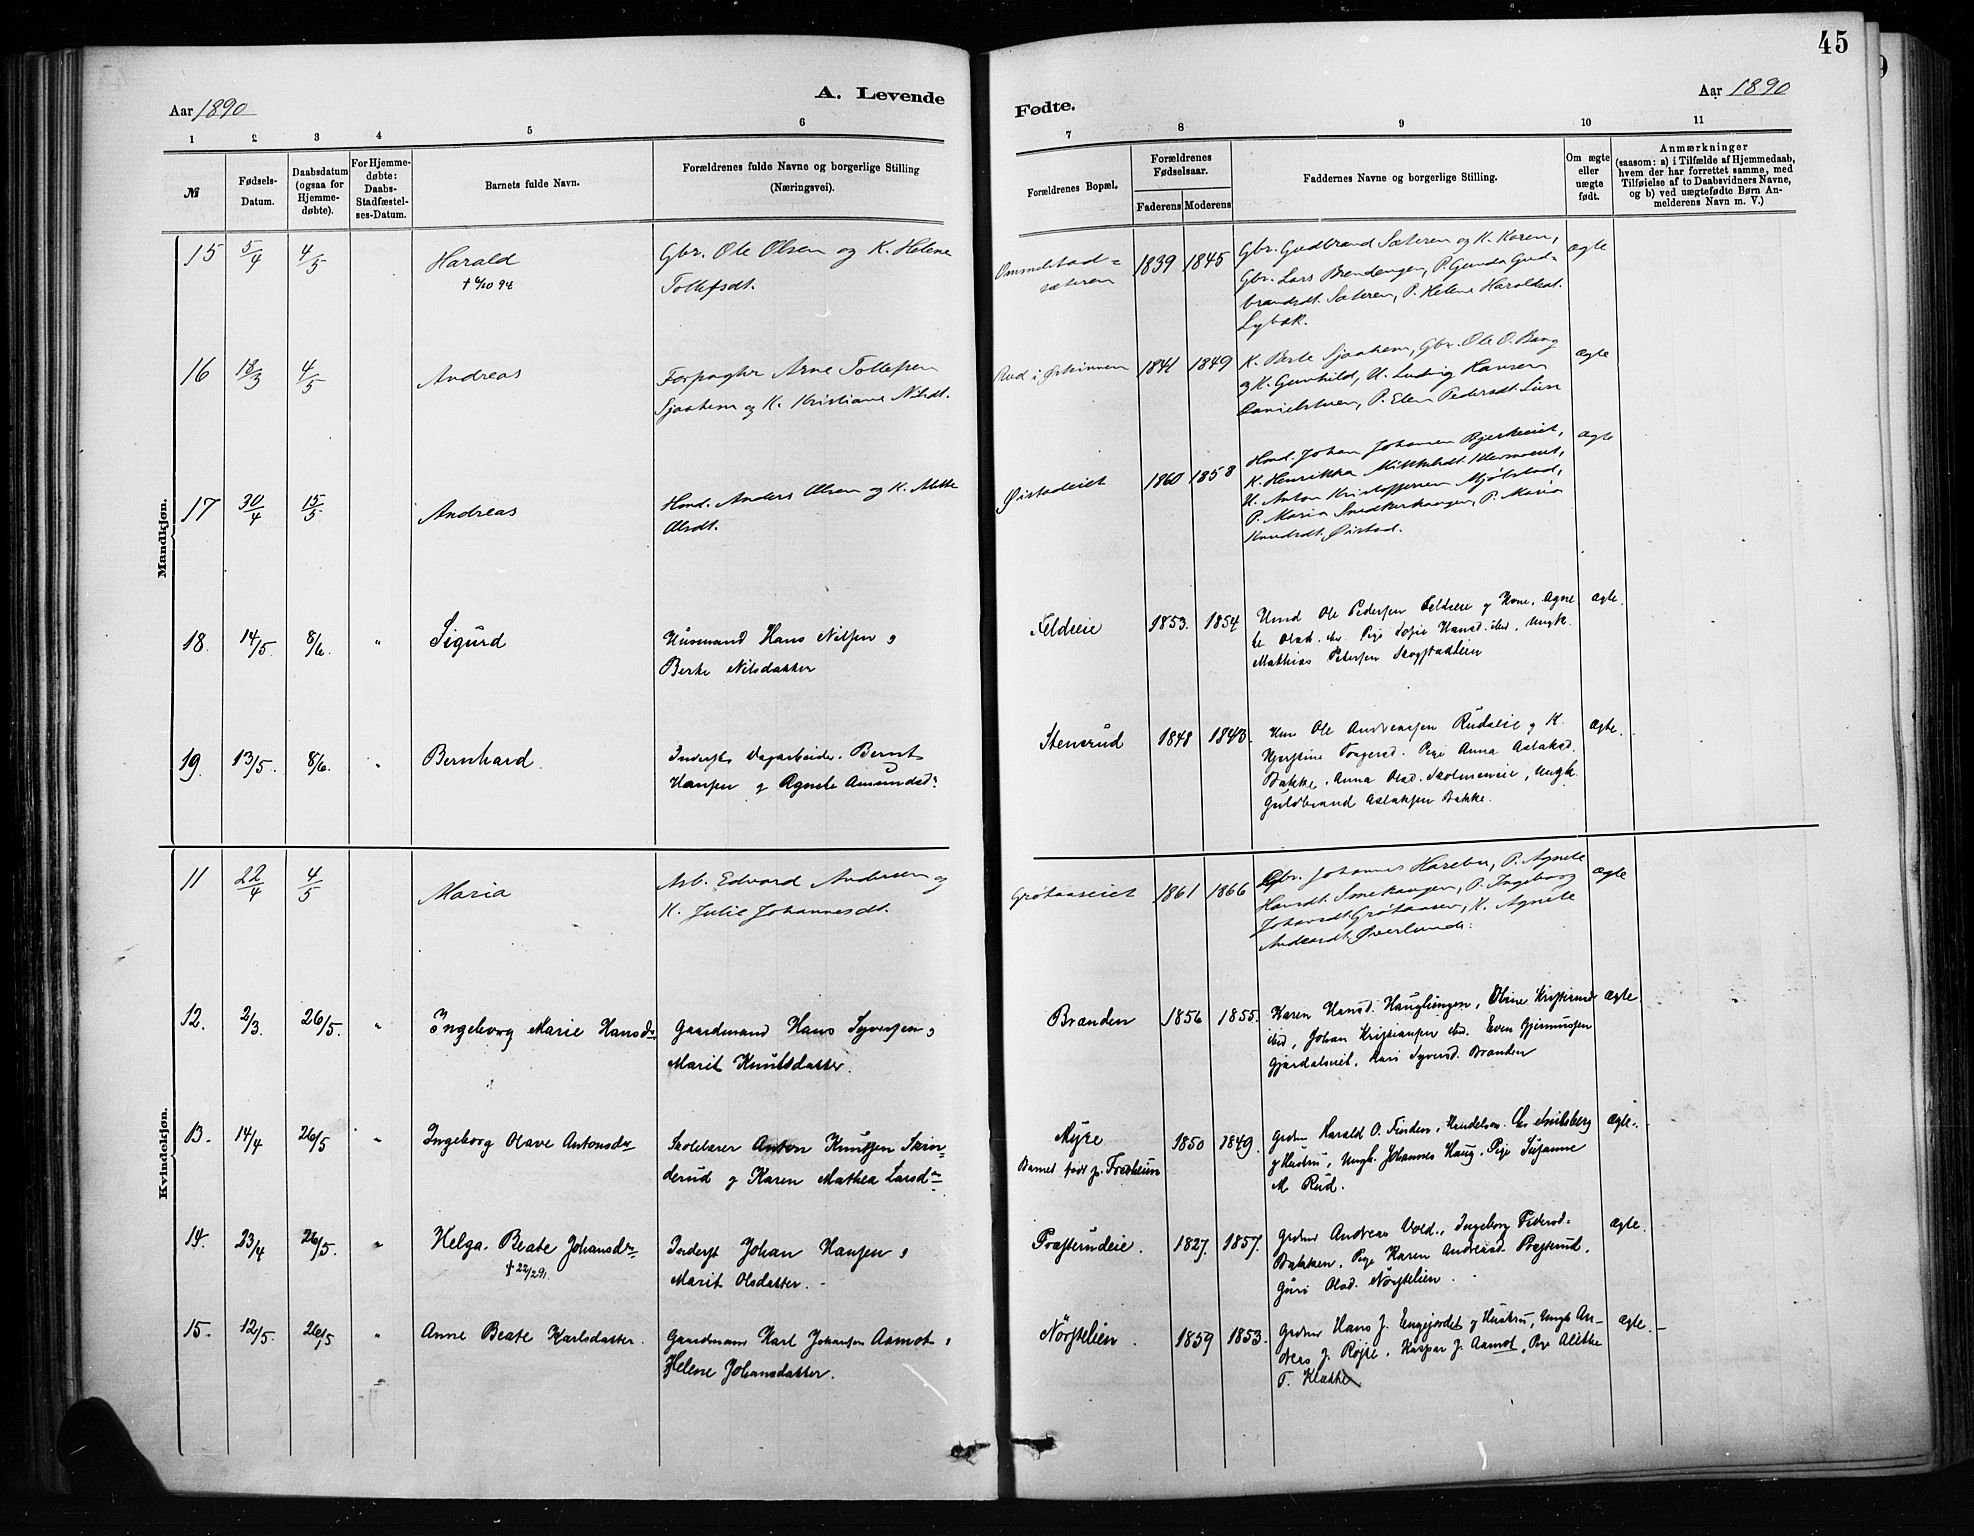 45
Aar 1890
A. Levende
Fødte.
Aar 1890
1 2 3 4 5 6 7 8 9 10 11
№
Fødsels-Datum.
Daabsdatum (ogsaa for Hjemmedøbte).
For Hjemmedøbte: Daabs-Stadfæstelses-Datum.
Barnets fulde Navn.
Forældrenes fulde Navne og borgerlige Stilling
(Næringsvei).
Forældrenes Bopæl.
Forældrenes Fødselsaar.
Faderens Moderens
Faddernes Navne og borgerlige Stilling.
Om ægte eller uægte født.
Anmærkninger
(saasom: a) i Tilfælde af Hjemmedaab,
hvem der har forrettet samme, med
Tilføielse af to Daabsvidners Navne,
og b) ved uægtefødte Børn Anmelderens Navn m. V.)
Mandkjøn.
15 5/4 4/5 Harald
† 6/10 94
Gbr. Ole Olsen og K. Helene
Tollefsdt.
Ommelstad-
sæteren
1839 1845
Gbr. Gudbrand Sæteren og K. Karen,
Gbr. Lars Brendengen, P. Gunda Gud-
brandsdt. Sæteren, P. Helene Haraldsdt.
Lybæk.
ægte
16 18/3 4/5 Andreas
Forpagter Arne Tollefsen
Sjaahem og K. Kristiane Nilsdt.
Rud i
1841 1849
K. Berte Sjaahem, Gbr. Ole O. Bang
og K. Gunhild, U. Ludvig Hansen
Danielstuen, P. Elen Pedersdt. Lien
ægte
17 30/4 15/5 Andreas
Hmd. Anders Olsen og K. Mette
Olsdt.
Øistadeiet
1860 1858
Hmd. Johan Johansen Bjerkeeiet,
K. Henrikka Mikkelsdt.
U. Anton Kristoffersen Mjølstad,
P. Maria Snedkerhaugen, P. Maria
Knudsdt. Øistad.
ægte
18. 14/5. 8/6. " Sigurd
Husmand Hans Nilsen og
Berte Nilsdatter
Feldseie
1853. 1854
Hmd Ole Pedersen Feldseie og Kone, Agne
te Olsd. ibd. Pige Sofie Hansd. ibd, Ungk.
Mathias Petersen Skogstadlien
ægte.
19. 13/5. 8/6. " Bernhard.
Inderst, Dagarbeider. Bernt
Hansen og Agnete Amundsdr
Stensrud
1848 1843.
Hm Ole Andreassen Rudseie og K.
Kjerstine Torgersd. Pige Anna Aslaksd.
Bakke. Anna Olsd. Skolmeneie, Ungk.
Guldbrand Aslaksen Bakke.
ægte.
Kvindekjøn.
11 22/4 4/5 Maria
Arb. Edvard Andersen og
K. Julie Johannesdt.
Grøtaaseiet
1861 1866
Gbr. Johannes Harebu, P. Agnete
Hansdt. Smehaugen, P. Ingeborg
Johansdt. Grøtaasen, K. Agnete
Andersdt. Øverlunde.
ægte
12. 2/3. 26/5. " Ingeborg Marie Hansdr
Gaardmand Hans Syversen og
Marit Knutsdatter.
Brænden
1856 1855.
Karen Hansd. Hauglungen, Oline Kristiansd
ibd, Johan Kristiansen ibd. Even Gjermundsen
Gjærdalseiet, Kari Syversd. Brænden
ægte
13. 14/4 26/5 " Ingeborg Olave Antonsdr
Skolelærer Anton Knutsen Skin-
derud og Karen Mathea Larsdr
Myre
Barnet født p. Fredheim
1850 1849.
Grdm Harald O. Finden,
og Hustru, Ungk. Johannes Haug, Pige Susanne
M Rud.
ægte.
14. 23/4 26/5. " Helga Beate Johansdr
† 22/2 91.
Inderst Johan Hansen og
Marit Olsdatter.
Præsterudeie.
1827. 1857.
Grdm Andreas Vold, Ingeborg Pedersd-
Bakken, Pige Karen Andreasd. Præsterud,
Guri Olsd. Nørstelien.
ægte.
15. 12/5. 26/5 " Anne Beate Karlsdatter.
Gaardmand Karl Johansen Aamot og
Helene Johansdatter.
Nørstelien.
1859 1853.
Grdm Hans J. Engejordet og Hustru, Ungk An-
dreas J. Røjse, Kaspar J. Aamot, Pige Alethe
T. Klække
ægte.